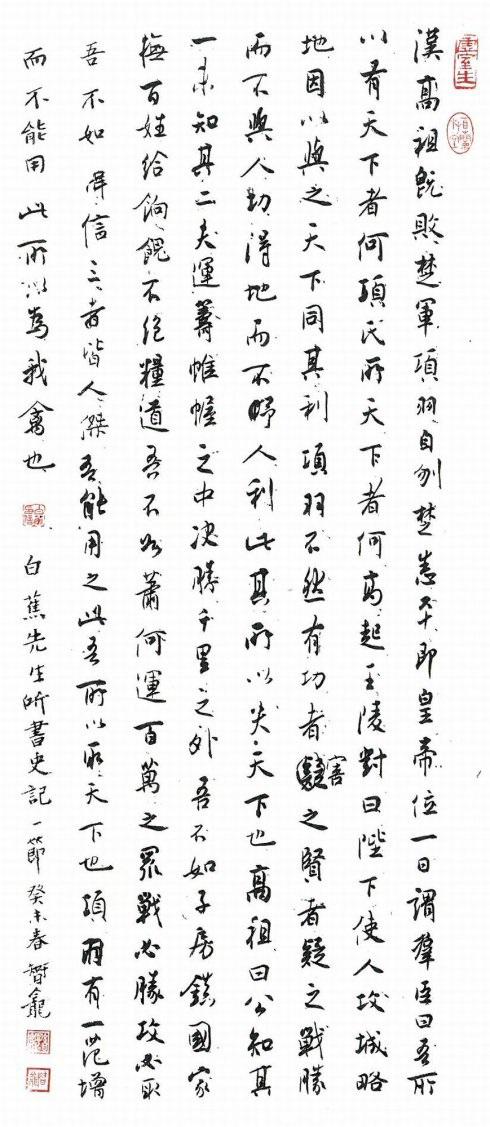 漢高祖既敗楚軍項羽自刎楚悉平即皇帝位一日謂羣臣曰吾所
以有天下者何項氏所天下者何高起王陵對曰陛下使人攻城略
地因以與之天下同其利項羽不然有功者疑害之賢者疑之戰勝
而不與人功得地而不人利此其所以失天下也高祖曰公知其
一未知其二夫運籌帷幄之中決勝千里之外吾不如子房鎮國家
撫百姓給餉餽不絕糧道吾不如蕭何運百萬之眾戰必勝攻必取
吾不如韓信三者皆人傑吾能用之此吾所以取天下也項羽有一范增
而不能用此所以為我禽也 白蕉先生所書史記一節癸未春智龕